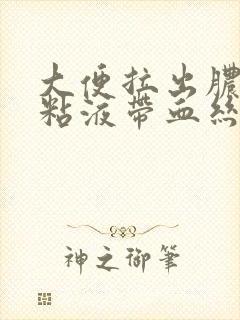 大便拉出膿
粘液帶血絲
神之御筆